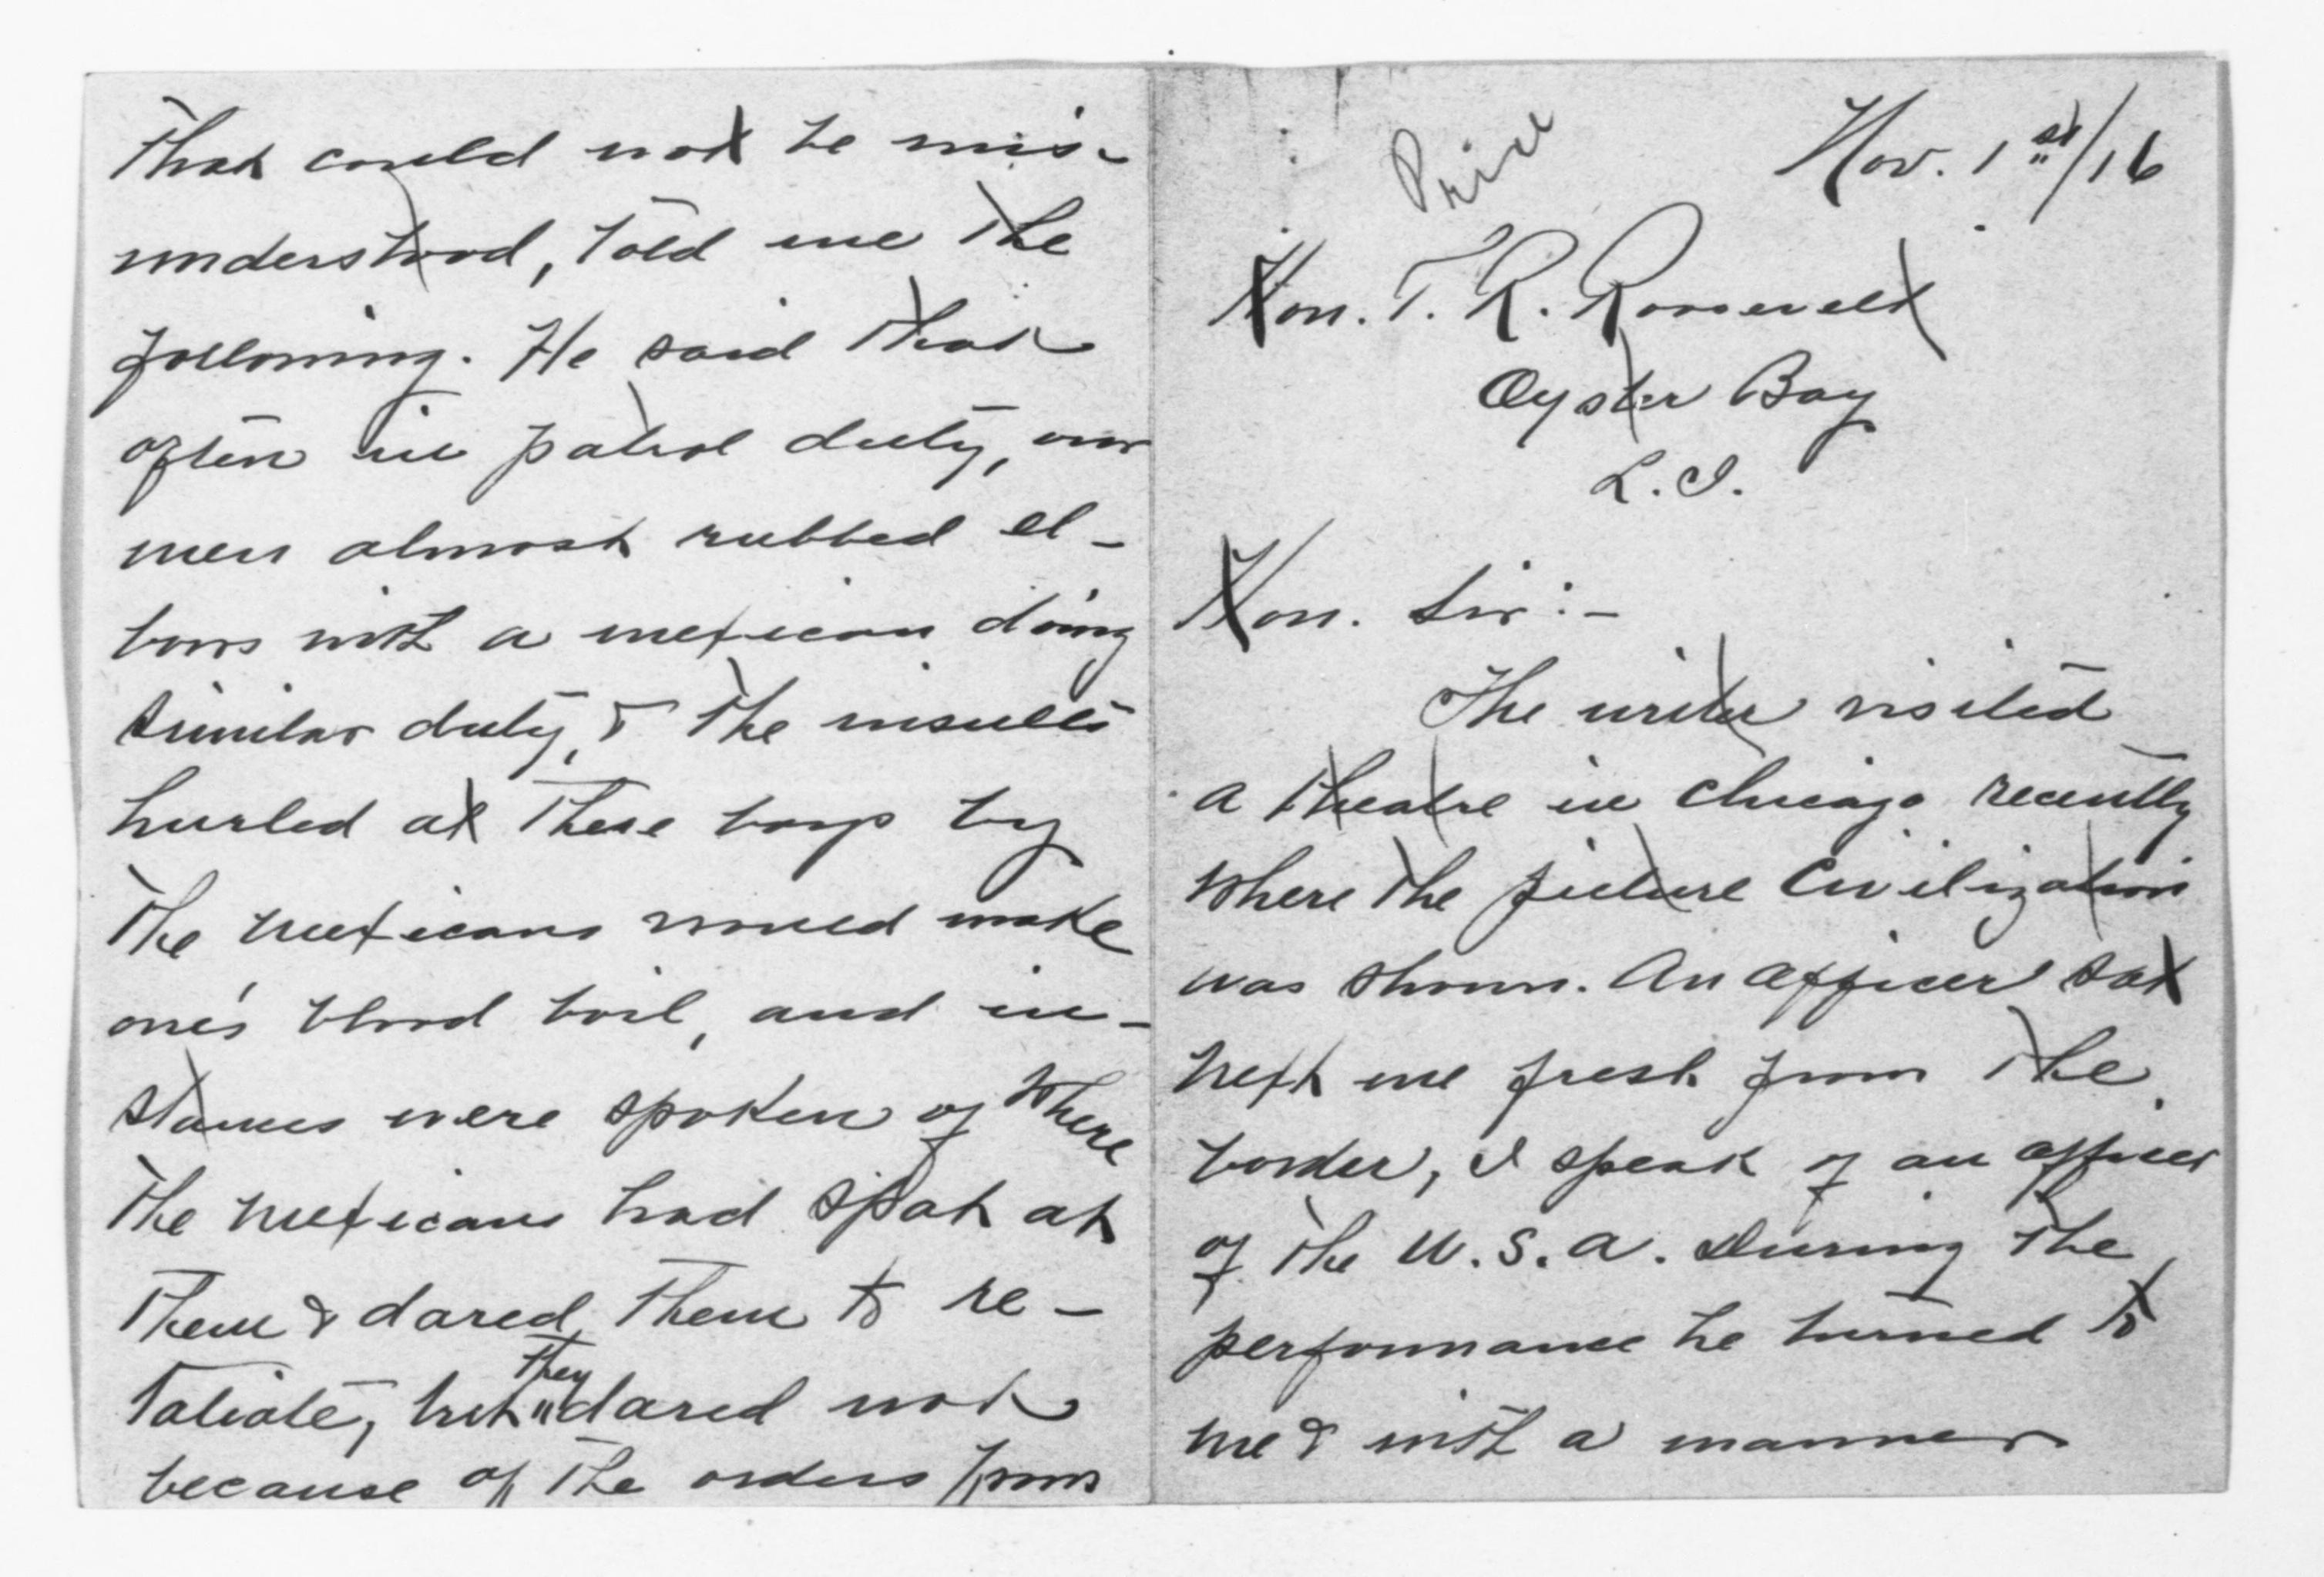 Price
Nov. 1st/16
Hon. T. R. Roosevelt
Oyster Bay
L. I.
Hon. Sir:-
The writer visited
a theatre in Chicago recently
where the picture Civilization
was shown. An officer sat
next me fresh from the
border, I speak of an officer
of the U.S.A. During the
performance he turned to
me & with a manner
that could not be mis-
understood, told me the
following. He said that
often in patrol duty, our
men almost rubbed el-
bows with a mexican doing
similar duty, & the insults
hurled at these boys by
the mexicans would make
one's blood boil, and in-
stances were spoken of where
the mexicans had spat at
them & dared them to re-
taliate, but they dared not
because of the orders from